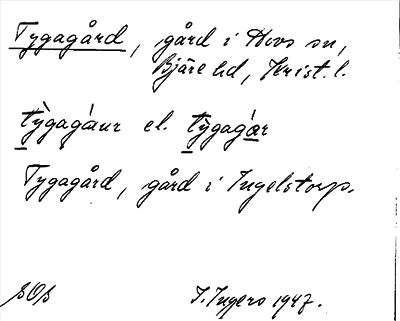 Tygagård, gård i Hovs sn,
Bjäre hd, Krist. l.
tỳgagáur el. tỳgagár
Tygagård, gård i Ingelstorp.
SOS
I. Ingers 1947.